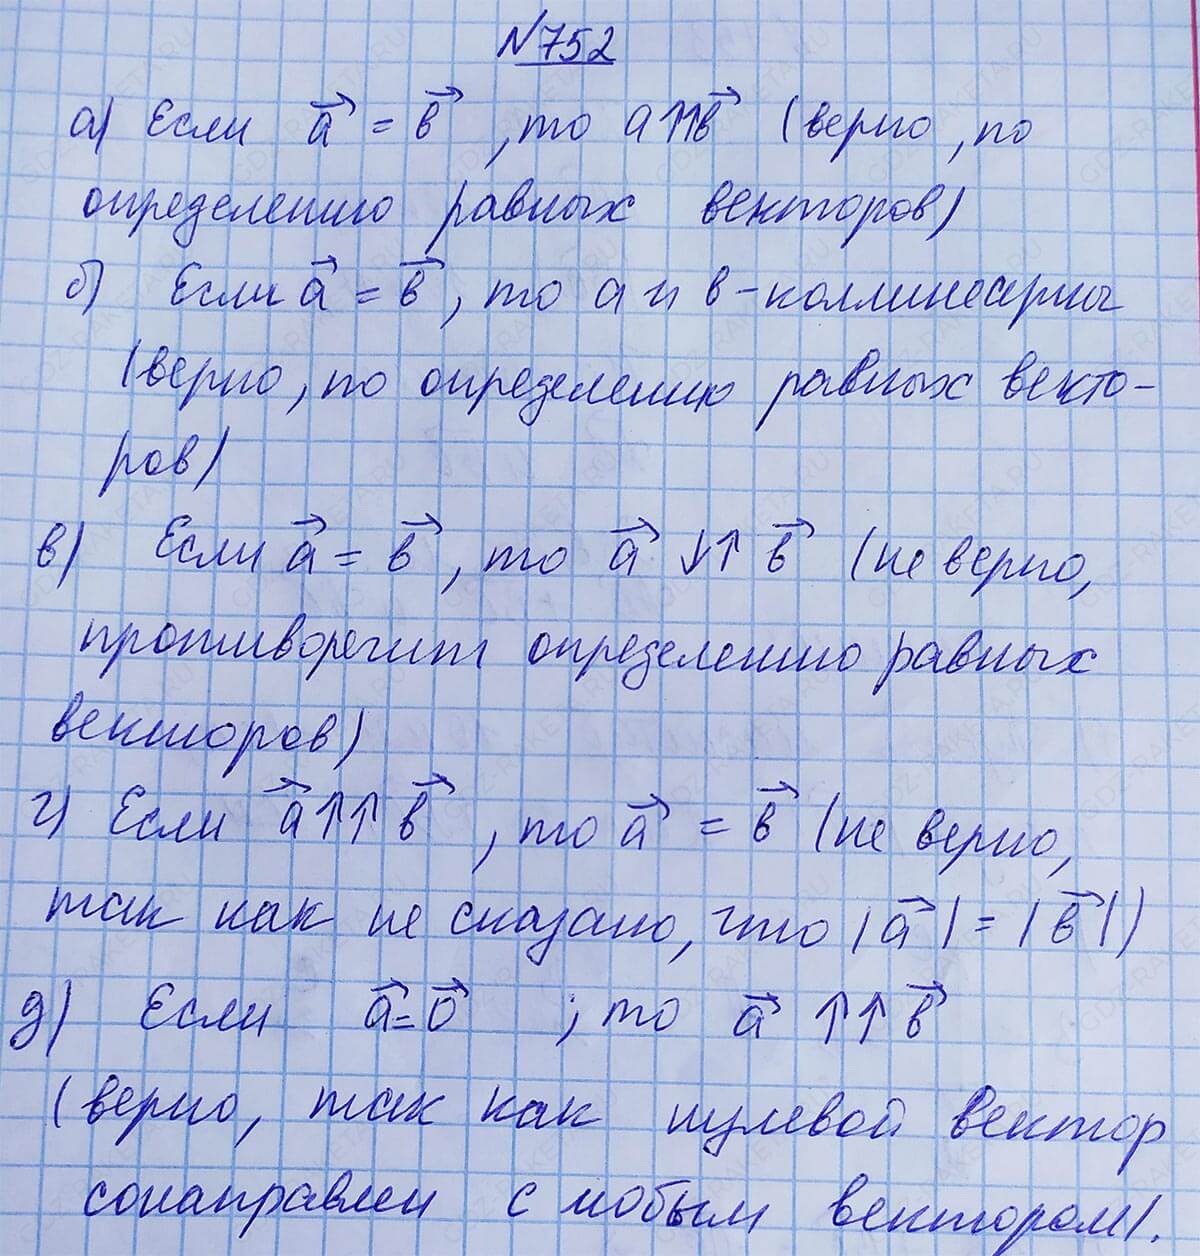 №752
а) Если a⃗ = b⃗ , то a↑↑b⃗ (верно , по
определению равных векторов)
б) Если a⃗ = b⃗ , то a и b - коллинеарны
(верно , по определению равных векто-
ров)
в) Если a⃗ = b⃗ , то a⃗ ↓↑ b⃗ (не верно,
противоречит определению равных
векторов)
г) Если a⃗ ↑↑ b⃗ , то a⃗ = b⃗ (не верно,
так как не сказано, что |a⃗| = |b⃗|)
д) Если a⃗ = 0⃗ ; то a⃗ ↑↑ b⃗
(верно, так как нулевой вектор
сонаправлен с любым вектором).